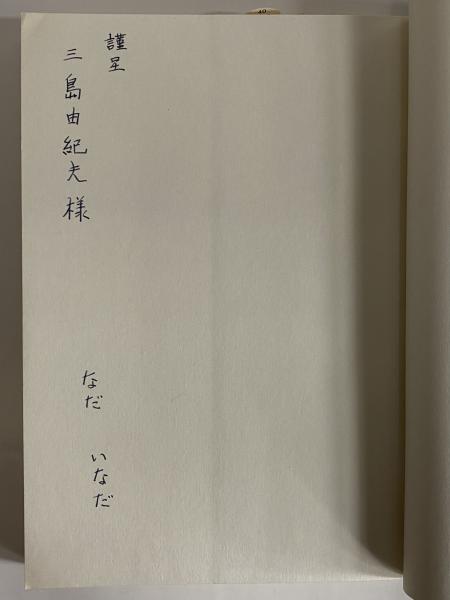 謹呈
三島由紀夫様
なだ いなだ